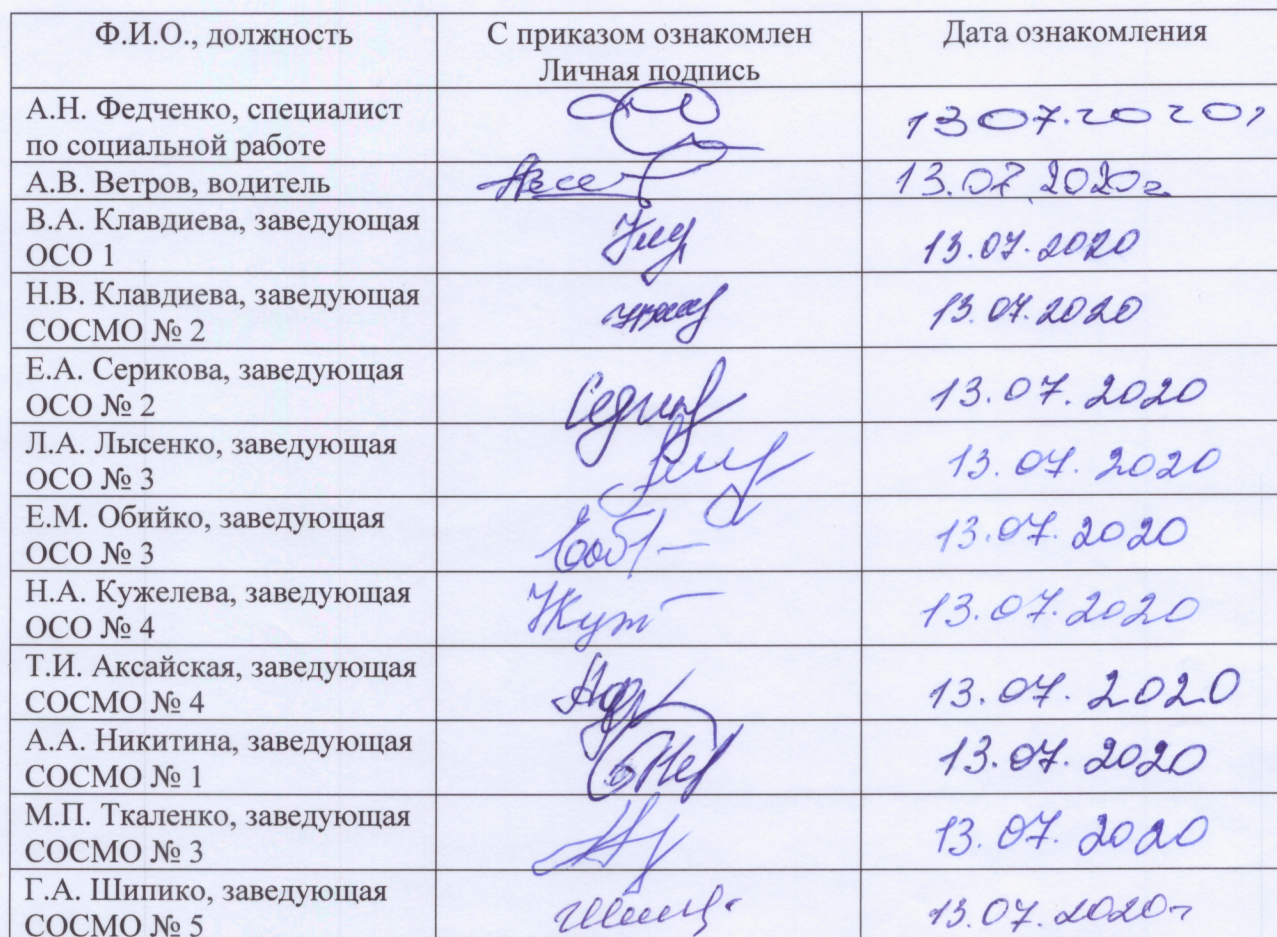 Ф.И.О., должность
С приказом ознакомлен
Личная подпись
Дата ознакомления
А.Н. Федченко, специалист
по социальной работе
13.07.2020г
А.В. Ветров, водитель
13.07.2020г
В.А. Клавдиева, заведующая
ОСО 1
13.07.2020
Н.В. Клавдиева, заведующая
СОСМО № 2
13.07.2020
Е.А. Серикова, заведующая
ОСО № 2
13.07.2020
Л.А. Лысенко, заведующая
ОСО № 3
13.07.2020
Е.М. Обийко, заведующая
ОСО № 3
13.07.2020
Н.А. Кужелева, заведующая
ОСО № 4
13.07.2020
Т.И. Аксайская, заведующая
СОСМО № 4
13.07.2020
А.А. Никитина, заведующая
СОСМО № 1
13.07.2020
М.П. Ткаленко, заведующая
СОСМО № 3
13.07.2020
Г.А. Шипико, заведующая
СОСМО № 5
13.07.2020г